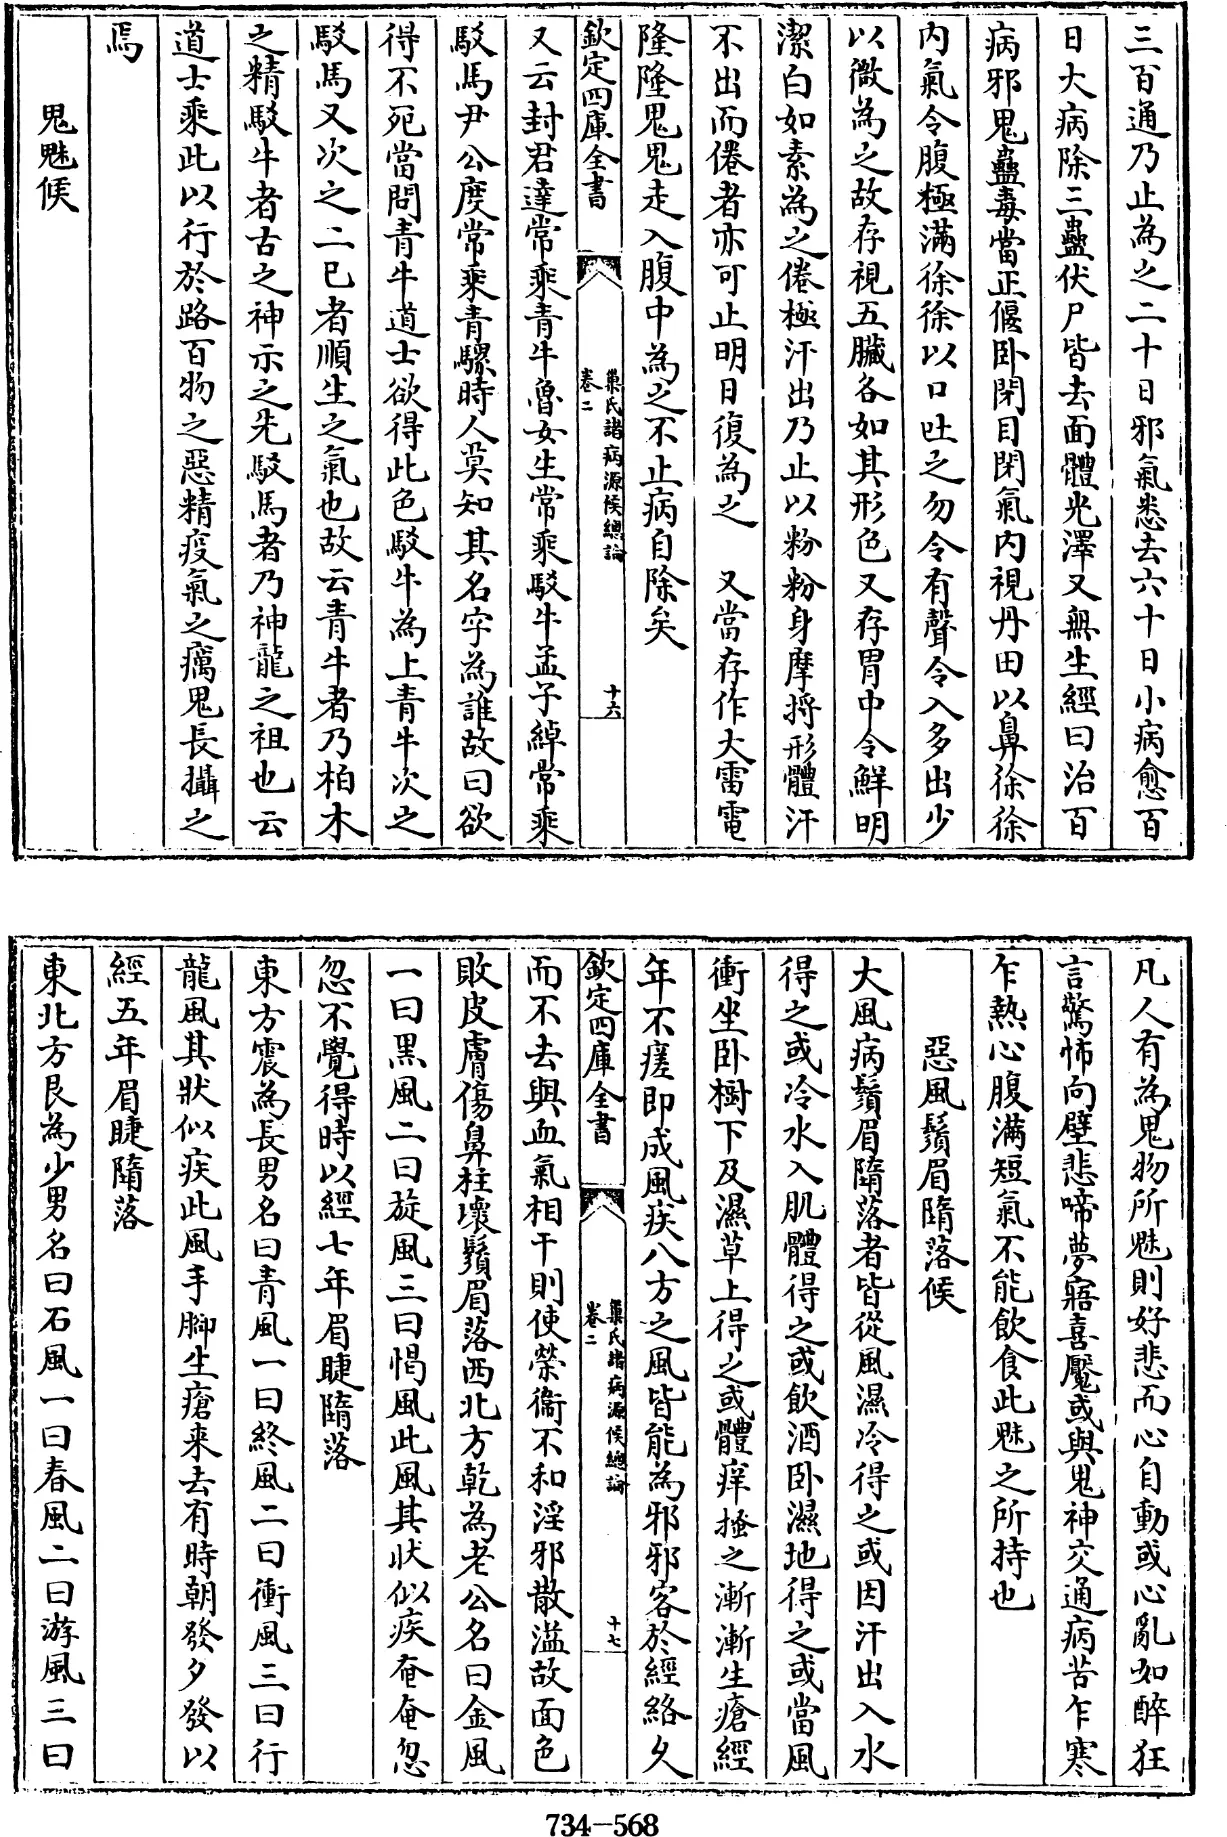 三百通乃止為之二十日邪氣悉去六十日小病愈百
日大病除三蠱伏尸皆去面體光澤又無生經曰治百
病邪鬼蠱毒當正偃卧閉目閉氣内視丹田以鼻徐徐
内氣令腹極滿徐徐以口吐之勿令有聲令入多出少
以微為之故存視五臟各如其形色又存胃中令鮮明
潔白如素為之倦極汗出乃止以粉粉身摩捋形體汗
不出而倦者亦可止明日復為之　又當存作大雷電
隆隆鬼鬼走入腹中為之不止病自除矣
欽定四庫全書
巢氏諸病源候總論
卷二
十六
又云封君達常乘青牛魯女生常乘駮牛孟子綽常乘
駮馬尹公度常乘青騾時人莫知其名字為誰故曰欲
得不死當問青牛道士欲得此色駮牛為上青牛次之
駮馬又次之二已者順生之氣也故云青牛者乃柏木
之精駮牛者古之神示之先駮馬者乃神龍之祖也云
道士乘此以行於路百物之惡精疫氣之癘鬼長攝之
焉
鬼魅候
凡人有為鬼物所魅則好悲而心自動或心亂如醉狂
言驚怖向壁悲啼夢寤喜魘或與鬼神交通病苦乍寒
乍熱心腹滿短氣不能飲食此魅之所持也
惡風鬚眉隋落候
大風病鬚眉隋落者皆從風濕冷得之或因汗出入水
得之或冷水入肌體得之或飲酒卧濕地得之或當風
衝坐卧樹下及濕草上得之或體痒搔之漸漸生瘡經
年不瘥即成風疾八方之風皆能為邪邪客於經絡久
欽定四庫全書
巢氏諸病源候總論
卷二
十七
而不去與血氣相干則使榮衞不和淫邪散溢故面色
敗皮膚傷鼻柱壞鬚眉落西北方乾為老公名曰金風
一曰黑風二曰旋風三曰愒風此風其狀似疾奄奄忽
忽不覺得時以經七年眉睫隋落
東方震為長男名曰青風一曰終風二曰衝風三曰行
龍風其狀似疾此風手脚生瘡来去有時朝發夕發以
經五年眉睫隋落
東北方艮為少男名曰石風一曰春風二曰游風三曰
734—568